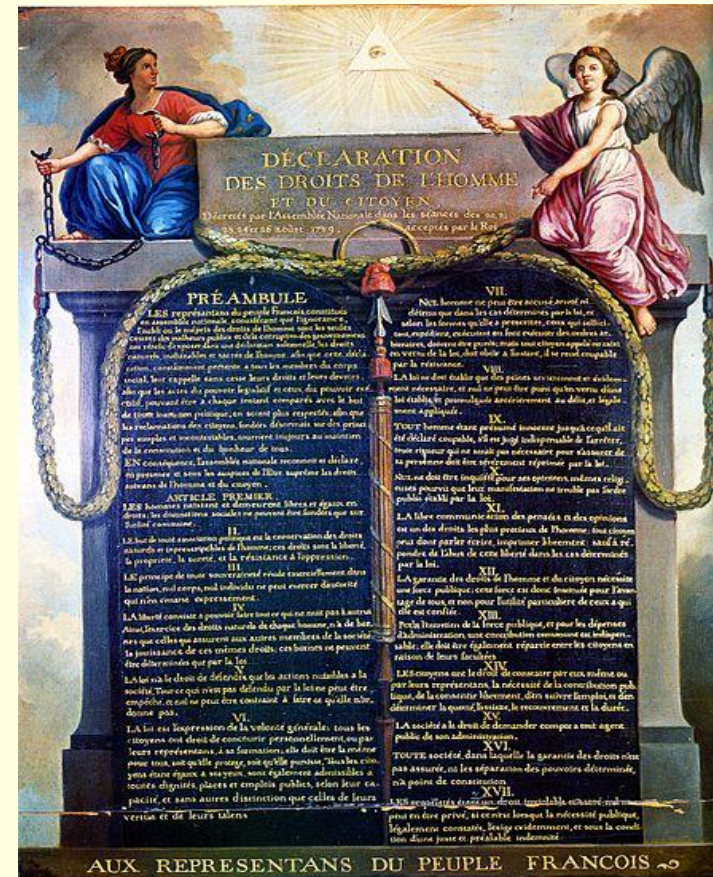 DÉCLARATION
DES DROITS DE L'HOMME
ET DU CITOYEN,
Décrétés par l'Assemblée Nationale dans les séances des 20, 21
23, 24 et 26 août 1789, acceptés par le Roi
PRÉAMBULE
LES représentans du peuple François, constitués
en assemblée nationale, considérant que l'ignorance,
l'oubli ou le mépris des droits de l'homme sont les seules
causes des malheurs publics et de la corruption des gouvernemens
ont résolu d'exposer dans une déclaration solemnelle, les droits
naturels, inaliénables et sacrés de l'homme; afin que cette décla-
ration, constamment présente a tous les membres du corps
social, leur rappelle sans cesse leurs droits et leurs devoirs;
afin que les actes du pouvoir législatif et ceux du pouvoir exé-
cutif, pouvant être a chaque instant comparés avec le but
de toute institution politique, en soient plus respectés; afin que
les réclamations des citoyens, fondées désormais sur des princi-
pes simples et incontestables, tournent toujours au maintien
de la constitution et du bonheur de tous.
EN conséquence, l'assemblée nationale reconnoit et déclare,
en presence et sous les auspices de l'Etre suprême les droits
suivans de l'homme et du citoyen.
ARTICLE PREMIER.
LES hommes naissent et demeurent libres et égaux en
droits; les distinctions sociales ne peuvent être fondées que sur
l'utilité commune.
II.
LE but de toute association politique est la conservation des droits
naturels et inprescriptibles de l'homme; ces droits sont la liberté,
la propriété, la sureté, et la résistance à l'oppression.
III.
LE principe de toute souveraineté réside essentiellement dans
la nation, nul corps, nul individu ne peut exercer d'autorité
qui n'en émane expressement.
IV.
LA liberté consiste a pouvoir faire tout ce qui ne nuit pas à autrui
Ainsi, l'exercice des droits naturels de chaque homme, n'a de bor-
nes que celles qui assurent aux autres membres de la société
la jouissance de ces mêmes droits; ces bornes ne peuvent
être déterminées que par la loi.
V.
LA loi n'a le droit de défendre que les actions nuisibles a la
société. Tout ce qui n'est pas défendu par la loi ne peut être
empêché, et nul ne peut être contraint à faire ce qu'elle n'or-
donne pas.
VI.
LA loi est l'expression de la volonté générale; tous les
citoyens ont droit de concourir personnellement, ou par
leurs représentans, à sa formation; elle doit être la même
pour tous, soit qu'elle protege, soit qu'elle punisse. Tous les cito-
yens étant égaux à ses yeux, sont également admissibles à
toutes dignités, places et emplois publics, selon leur ca-
pacité, et sans autres distinction que celles de leurs
vertus et de leurs talens
VII.
NUL homme ne peut être accusé, arreté ni
détenu que dans les cas déterminés par la loi, et
selon les formes qu'elle a prescrites, ceux qui sollici-
tent, expédient, exécutent ou font exécuter des ordres ar-
bitraires, doivent être punis; mais tout citoyen appelé ou saisi
en vertu de la loi, doit obéir a l'instant, il se rend coupable
par la résistance.
VIII.
LA loi ne doit établir que des peines strictement et évidem-
ment nécessaire, et nul ne peut être puni qu'en vertu d'une
loi établie et promulguée antérieurement au délit, et légale
ment appliquée.
IX.
TOUT homme étant présumé innocent jusqu'à ce qu'il ait
été déclaré coupable, s'il est jugé indispensable de l'arrêter,
toute rigueur qui ne serait pas nécessaire pour s'assurer de
sa personne doit être sévèrement réprimée par la loi.
X.
NUL ne doit être inquiété pour ses opinions, mêmes religi-
euses pourvu que leur manifestation ne trouble pas l'ordre
public établi par la loi.
XI.
LA libre communication des pensées et des opinions
est un des droits les plus precieux de l'homme; tout citoyen
peut donc parler écrire, imprimer librement; sauf à ré-
pondre de l'abus de cette liberté dans les cas déterminés
par la loi.
XII.
LA garantie des droits de l'homme et du citoyen nécessite
une force publique; cette force est donc instituée pour l'avan-
tage de tous, et non pour l'utilité particuliere de ceux a qui
elle est confiée.
XIII.
Pour l'entretien de la force publique, et pour les dépenses
d'administration, une contribution commune est indispen-
sable; elle doit être également répartie entre les citoyens en
raison de leurs facultées
XIV.
LES citoyens ont le droit de constater par eux même ou
par leurs représentans, la nécessité de la contribution pub-
lique, de la consentir librement, d'en suivre l'emploi, et d'en
déterminer la quotité, l'assiette, le recouvrement et la durée.
XV.
LA société a le droit de demander compte a tout agent
public de son administration.
XVI.
TOUTE société, dans laquelle la garantie des droits n'est
pas assurée, ni les séparation des pouvoirs déterminée,
n'a point de constitution
XVII.
LES propriétés étant un droit inviolable et sacré, nul ne
peut en être privé, si ce n'est lorsque la nécessité publique,
légalement constatée, l'exige évidemment, et sous la condi-
tion d'une juste et préalable indemnité.
AUX REPRESENTANS DU PEUPLE FRANCOIS